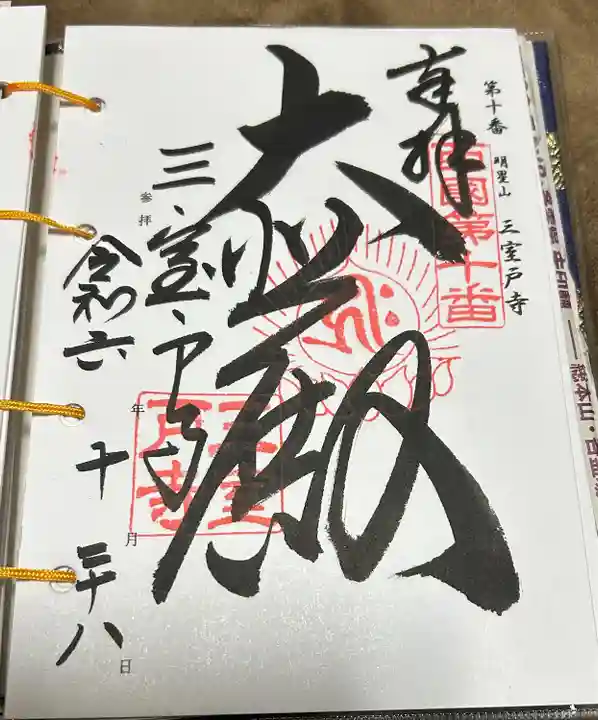 第十番 明星山 三室戸寺
奉拝
西國第十番
大悲殿
三室戸寺
三室戸寺
参拝
令和六年十月二十八日